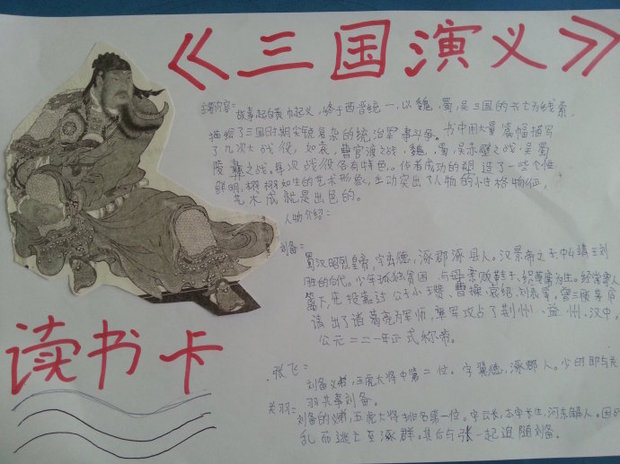 《三国演义》
主要内容：故事起自黄巾起义，终于西晋统一，以魏、蜀、吴三国的兴亡为线索，
描写了三国时期复杂的统治军事斗争。书中用大量篇幅描写
了几次大战役，如袁、曹官渡之战，魏、蜀、吴赤壁之战，吴蜀
陵之战，每次战役各有特色。作者成功的塑造了一些个性
鲜明、栩栩如生的艺术形象，生动突出了人物的性格特征，
艺术成就是出色的。
人物介绍：
刘备：
蜀汉昭烈皇帝，字玄德，涿郡涿县人。汉景帝之子中山靖王刘
胜的后代。少年孤独贫困，与母亲贩鞋子、织草席为生。经常寄人
篱下，先投靠过公孙瓒、曹操、袁绍、刘表等。曾三顾茅庐
请出了诸葛亮为军师，率军攻占了荆州、益州、汉中。
公元二二一年正式称帝。
张飞：
刘备义弟，五虎大将中第二位。字翼德，涿郡人。少时即与关
羽共事刘备。
关羽：
刘备的义弟，五虎大将排名第一位。字云长，本字长生，河东解人。因
乱而逃亡至涿群。其后与张一起追随刘备。
读书卡